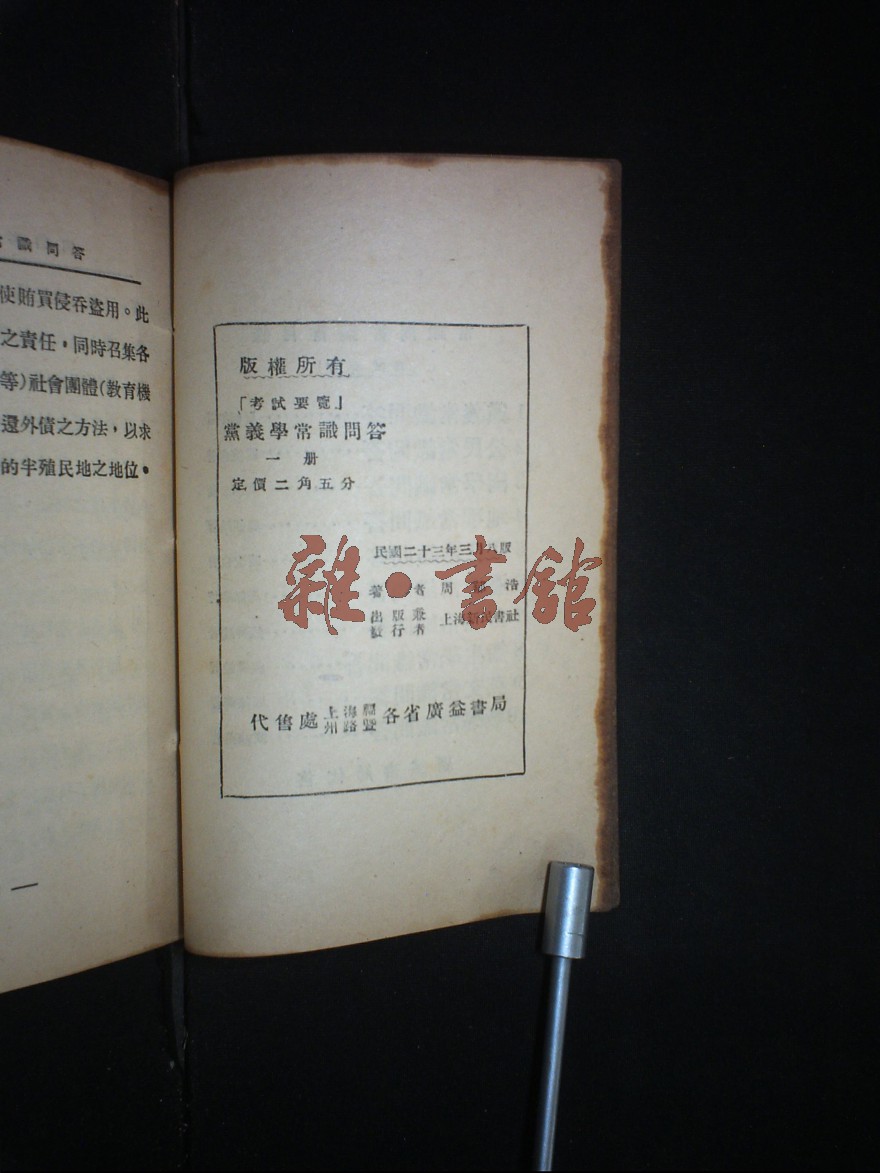 識問答
使賄買侵吞盜用。此
之責任，同時召集各
等）社會團體（教育機
還外債之方法，以求
的半殖民地之地位。
版權所有
「考試要覽」
黨義學常識問答
一冊
定價二角五分
民國二十三年三月版
著者 周 浩
出版兼發行者 上海書社
代售處 上海福州路暨各省廣益書局
雜·書館